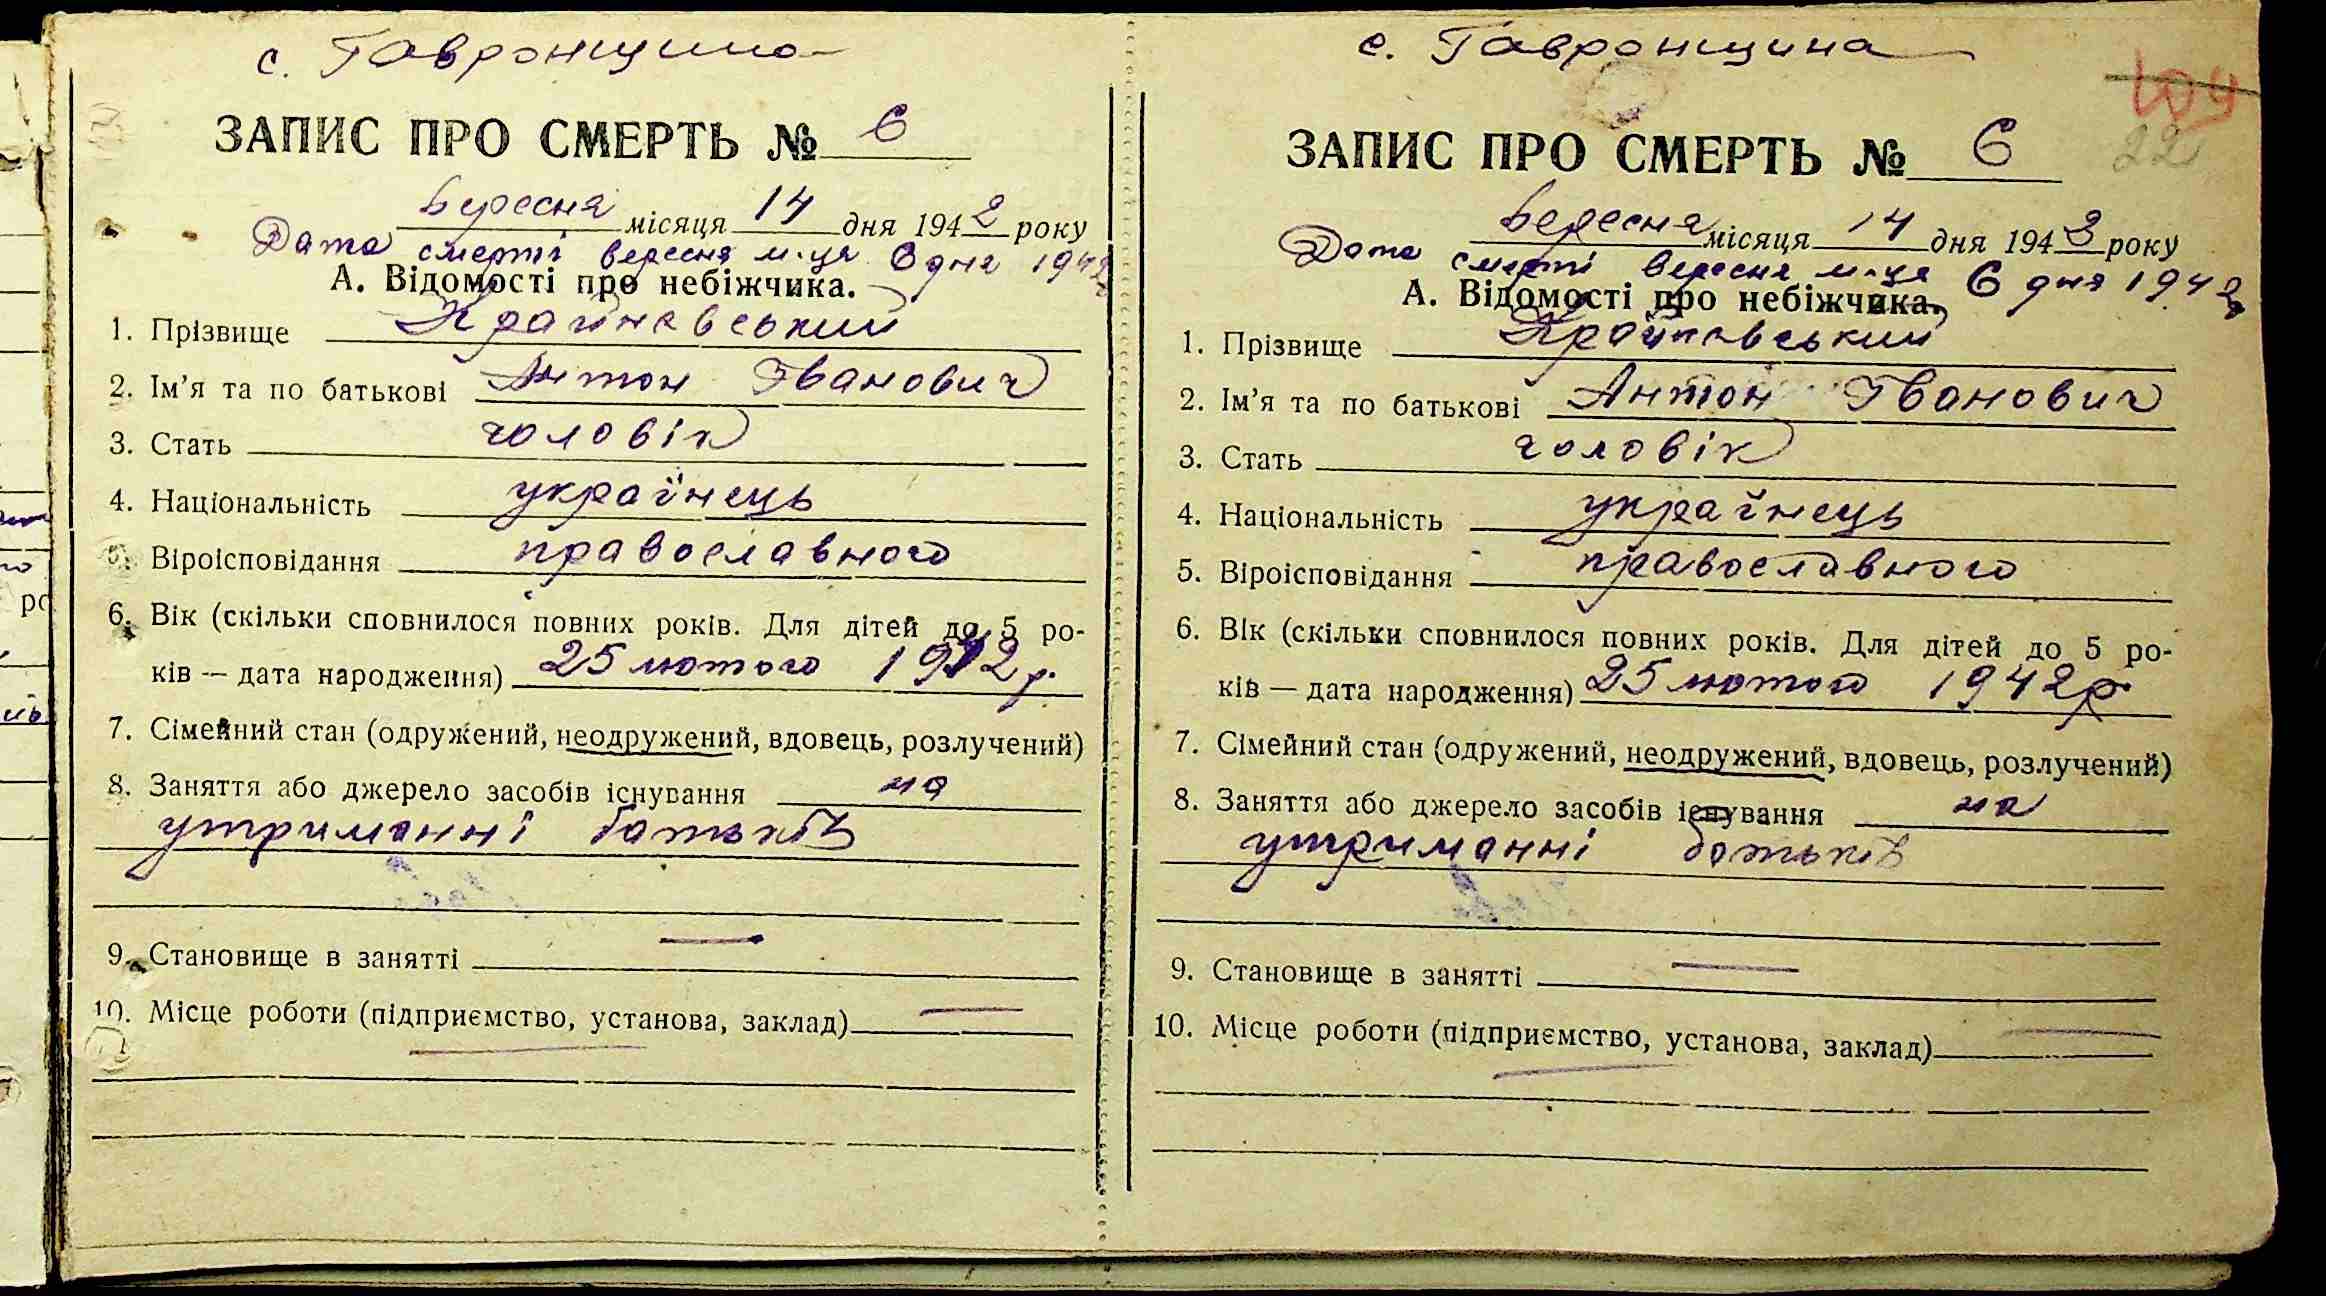 с. Гавронщина
ЗАПИС ПРО СМЕРТЬ № 6
Вересня місяця 14 дня 1942 року
Дата смерті вересня м-ця 6 дня 1942
А. Відомості про небіжчика.
1. Прізвище Крайневський
2. Ім'я та по батькові Антон Іванович
3. Стать чоловік
4. Національність українець
5. Віроісповідання православного
6. Вік (скільки сповнилося повних років. Для дітей до 5 ро-
ків — дата народження) 25 лютого 1942 р.
7. Сімейний стан (одружений, неодружений, вдовець, розлучений)
8. Заняття або джерело засобів існування на
утриманні батьків
9. Становище в занятті —
10. Місце роботи (підприємство, установа, заклад) —
с. Гавронщина
104
22
ЗАПИС ПРО СМЕРТЬ № 6
Вересня місяця 14 дня 1942 року
Дата смерті вересня м-ця 6 дня 1942
А. Відомості про небіжчика.
1. Прізвище Крайневський
2. Ім'я та по батькові Антон Іванович
3. Стать чоловік
4. Національність українець
5. Віроісповідання православного
6. Вік (скільки сповнилося повних років. Для дітей до 5 ро-
ків — дата народження) 25 лютого 1942 р.
7. Сімейний стан (одружений, неодружений, вдовець, розлучений)
8. Заняття або джерело засобів існування на
утриманні батьків
9. Становище в занятті —
10. Місце роботи (підприємство, установа, заклад) —